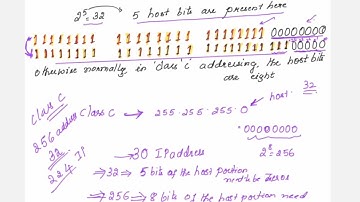 2⁵=32 5 host bits are present here
11111111 11111111 11111111 00000000
11111111 11111111 11111111 11100000
Otherwise normally in 'class 'c' addressing, the host bits
are eight
class C
256 address class C → 255.255.255.0
host: 32
00000000
32
224 IP
→ 30 IP address
2⁸=256
→ 32 → 5 bits of the host portion
need to be zeros
→ 256 → 8 bits of the host portion need